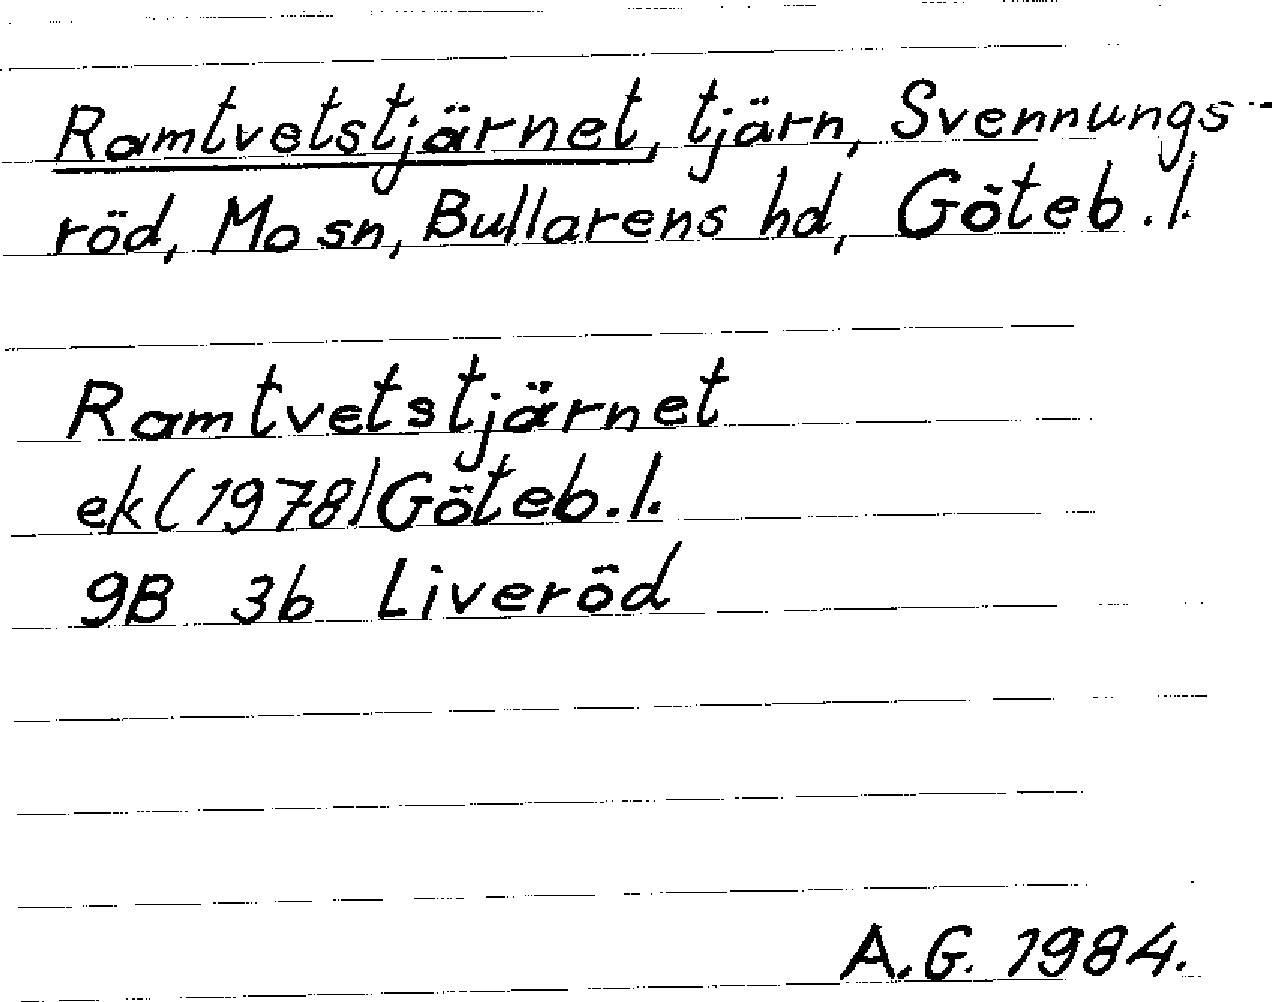 Ramtvetstjärnet, tjärn, Svennungs-
röd, Mo sn, Bullarens hd, Göteb. l.
Ramtvetstjärnet
ek (1978) Göteb. l.
9B 3b Liveröd
A.G. 1984.